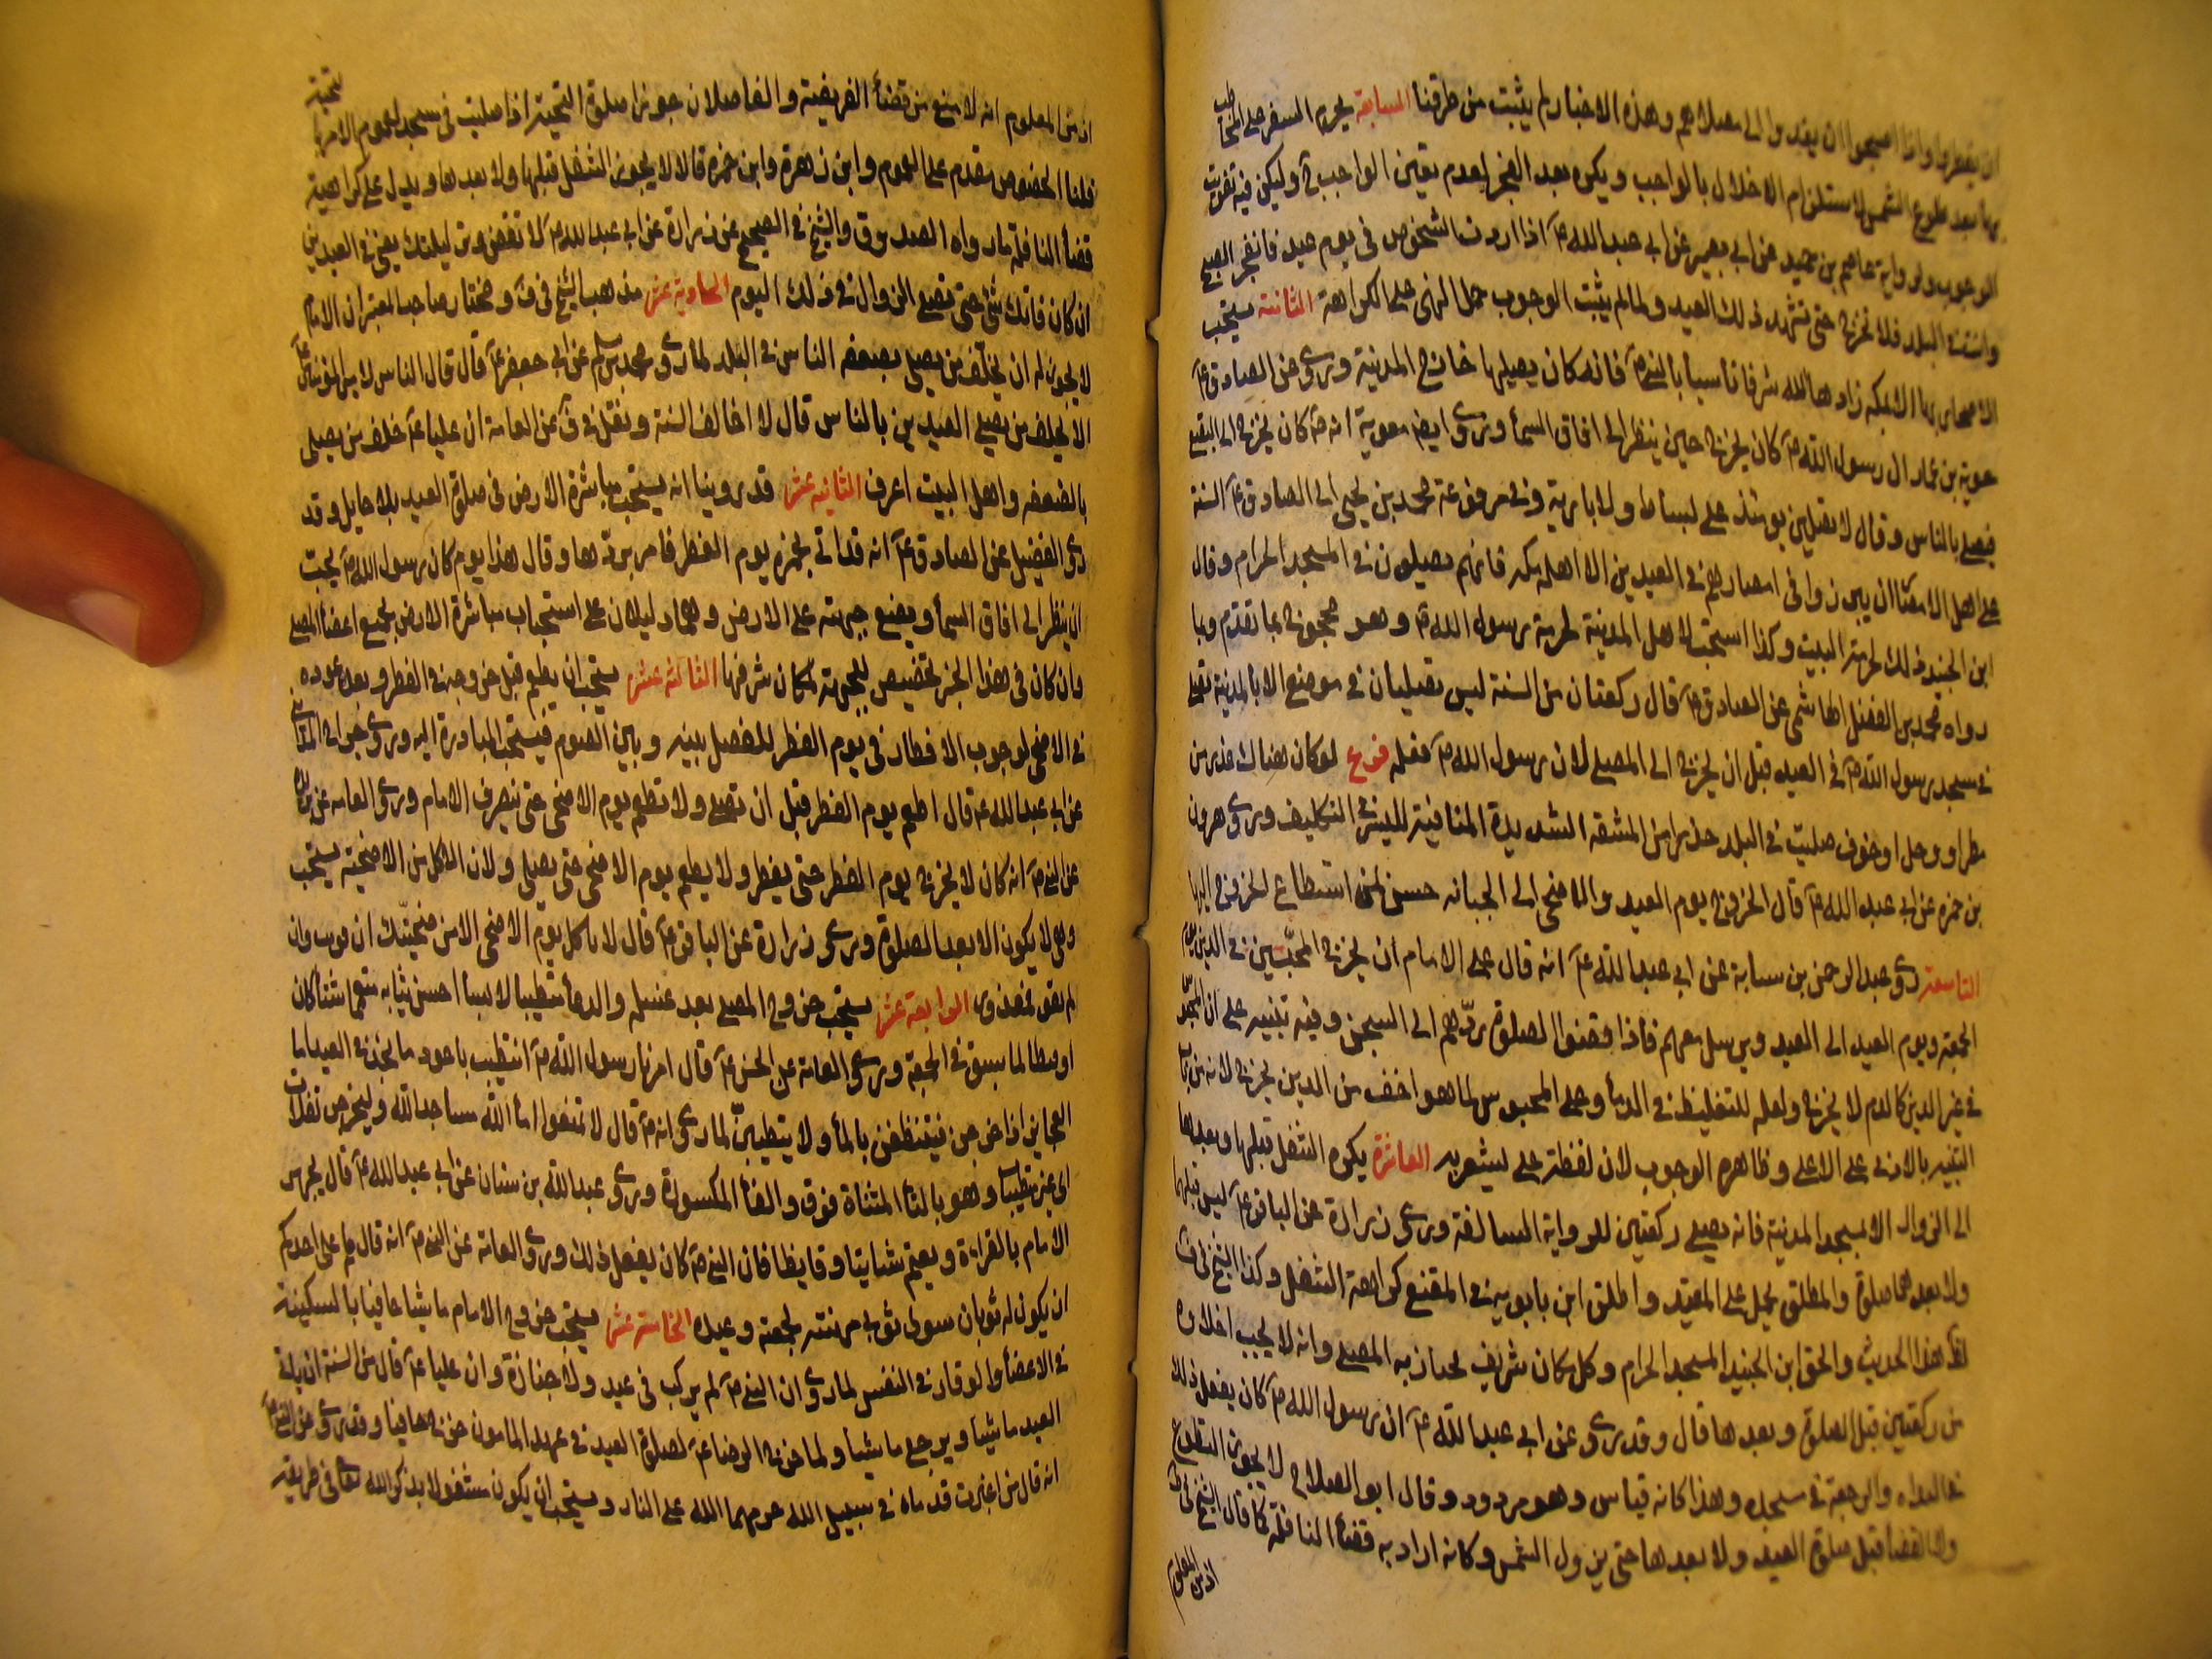 ان يفطروا واذا اصبحوا ان يغدوا الى مصلاهم وهذه الاخبار لم يثبت من طرقنا السابعة يحرم السفر على المخاطب
بها بعد طلوع الشمس لاستلزام الاخلال بالواجب ويكره بعد الفجر لعدم تعين الواجب ح ولكن فيه تفويت
الوجوب ولرواية عاصم بن حميد عن ابي بصير عن ابي عبد الله ع اذا اردت الشخوص في يوم عيد فانفجر الصبح
وانت في البلد فلا تخرج حتى تشهد ذلك العيد ولما لم يثبت الوجوب حمل النهي على الكراهة الثامنة يستحب
الاصحار بها الا بمكه زادها الله شرفا تاسيا بالنبي ص فانه كان يصليها خارج المدينة وروى عن الصادق ع
معوية بن عمار ان رسول الله ص كان يخرج حين ينظر الى افاق السمأ وروى ايض معوية انه ص كان يخرج الى البقيع
فيصلي بالناس وقال لا يصلين يومئذ على بساط ولا بارية وفي مرفوعة محمد بن يحيى الى الصادق ع السنة
على اهل الامصار ان يبرزوا في امصارهم في العيدين الا اهل مكه فانهم يصلون في المسجد الحرام وقال
ابن الجنيد ذلك لحرمة البيت وكذا استحب لاهل المدينة لحرمة رسول الله ص وهو محجوج بما تقدم وبما
رواه محمد بن الفضل الهاشمي عن الصادق ع قال ركعتان من السنة ليس تصليان في موضع الا بالمدينة تصلى
في مسجد رسول الله ص في العيد قبل ان يخرج الى المصلى لان رسول الله ص فعله فرع لو كان هناك عذر من
مطر او وحل او خوف صليت في البلد حذرا من المشقه الشديدة المنافية لليسر في التكليف وروى هرون
بن حمزه عن ابي عبد الله ع قال الخروج يوم العيد والاضحى الى الجبانه حسن لمن استطاع الخروج اليها
التاسعة روى عبد الرحمن بن سيابة عن ابي عبد الله ع انه قال على الامام ان يخرج المحبسين في الدين يوم
الجمعة ويوم العيد الى العيد ويرسل معهم فاذا قضوا الصلوة ردهم الى السجن وفيه تنبيه على ان المحبوس
في غير الدين كالدم لا يخرج ولعله للتغليظ في الدمأ وحمل المحبوس لما هو اخف من الدين يخرج لانه من باب
التنبيه بالادنى على الاعلى وظاهره الوجوب لان لفظة على يشعر به العاشرة يكره التنفل قبلها وبعدها
الى الزوال الا بمسجد المدينة فانه يصلي ركعتين للرواية السالفة وروى زرارة عن الباقر ع ليس قبلهما
ولا بعدهما صلوة والمطلق يحمل على المقيد واطلق ابن بابويه في المقنع كراهة التنفل وكذا الشيخ في ف
لظ هذا الحديث والحق ابن الجنيد المسجد الحرام وكل مكان شريف يجتاز به المصلي وانه لا يجب اخلاؤه
من ركعتين قبل الصلوة وبعدها قال وقد روى عن ابي عبد الله ع ان رسول الله ص كان يفعل ذلك
في البداه والرجعة في مسجده وهذا كانه قياس وهو مردود وقال ابو الصلاح لا يجوز التطوع
ولا القضأ قبل صلوة العيد ولا بعدها حتى يزول الشمس وكانه اراد به قضأ النافلة كما قال الشيخ في ط
اذ من المعلوم
اذ من المعلوم انه لا منع من قضأ الفريضة والفاضلان جوزا صلوة التحية اذا صليت في مسجد لعموم الامر بالتحية
قلنا الخصوص مقدم على العموم وابن زهرة وابن حمزه قالا لا يجوز التنفل قبلها ولا بعدها ويدل على كراهية
قضأ النافلة ما رواه الصدوق والشيخ في الصحيح عن زرارة عن ابي عبد الله ع لا تقض وتر ليلتك يعني في العيدين
ان كان فاتك شئ حتى تصلي الزوال في ذلك اليوم الحادية عشر مذهب الشيخ في ف ومختار صاحب المعتبر ان الامام
لا يجوز له ان يخلف من يصلي بضعفه الناس في البلد لما روى محمد بن مسلم عن ابي جعفر ع قال قال الناس لامير المؤمنين ع
الا يخلف من يصلي العيدين بالناس قال لا اخالف السنة ونقل في ف عن العامة ان عليا ع خلف من يصلي
بالضعفه واهل البيت اعرف الثانيه عشر قد روينا انه يستحب مباشرة الارض في صلوة العيد بلا حايل وقد
روى الفضيل عن الصادق ع انه قد اتي بخمره يوم الفطر فامر بردها وقال هذا يوم كان رسول الله ص يحب
ان ينظر الى افاق السمأ ويضع جبهته على الارض وهما دليلان على استحباب مباشرة الارض بجميع اعضأ المصلي
وان كان في هذا الخبر تخصيص للجبهة لمكان شرفها الثالثه عشر يستحب ان يطعم قبل خروجه في الفطر وبعد عوده
في الاضحى لوجوب الافطار في يوم الفطر للفصل بينه وبين الصوم فيستحب المبادرة اليه وروى جراح المدايني
عن ابي عبد الله ع قال اطعم يوم الفطر قبل ان تصلي ولا تطعم يوم الاضحى حتى ينصرف الامام وروى العامه عن بريده
عن النبي ص انه كان لا يخرج يوم الفطر حتى يفطر ولا يطعم يوم الاضحى حتى يصلي ولان الاكل من الاضحية يستحب
وهي لا يكون الا بعد الصلوة وروى زرارة عن الباقر ع قال لا تاكل يوم الاضحى الا من ضحيتك ان قويت وان
لم تقو فمعذور الرابعة عشر يستحب خروج المصلي بعد غسله والدعأ متطيبا لابسا احسن ثيابه متعمما شتأ كان
او قيظا لما سبق في الجمعة وروى العامة عن الحسن ع قال امرنا رسول الله ص ان نتطيب باجود ما نجد في العيد اما
العجايز اذا خرجن فيتنظفن بالمأ ولا يتطيبن لما روى انه ص قال لا تمنعوا امأ الله مساجد الله وليخرجن تفلات
اي غير متطيبات وهو بالتأ المثناة فوق والفأ المكسورة وروى عبد الله بن سنان عن ابي عبد الله ع قال يجهر
الامام بالقراءة ويعتم شاتيا وقايظا فان النبي ص كان يفعل ذلك وروى العامة عن النبي ص انه قال ما على احدكم
ان يكون له ثوبان سوى ثوبي مهنته لجمعته وعيده الخامسة عشر يستحب خروج الامام ماشيا حافيا بالسكينة
في الاعضأ والوقار في النفس لما روى ان النبي ص لم يركب في عيد ولا جنازة وان عليا ع قال من السنة ان ياتي
العيد ماشيا ويرجع ماشيا ولما خرج الرضا ع لصلوة العيد في عهد المامون خرج حافيا وقد روى عن النبي ص
انه قال من اغبرت قدماه في سبيل الله حرمهما الله على النار ويستحب ان يكون مشغولا بذكر الله تعالى في طريقه